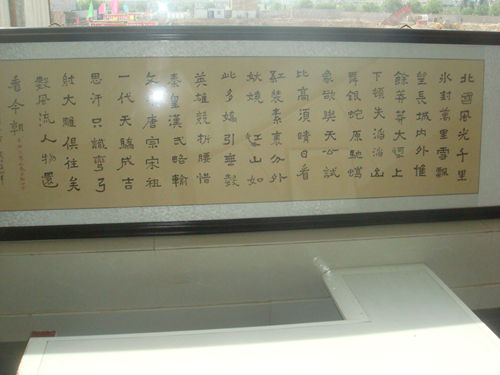 北國風光千里
冰封萬里雪飄
望長城内外惟
餘莽莽大河上
下頓失滔滔山
舞銀蛇原馳蠟
象欲與天公試
比高須晴日看
紅裝素裹分外
妖嬈江山如
此多嬌引無數
英雄競折腰惜
秦皇漢武略輸
文采唐宗宋祖
一代天驕成吉
思汗只識彎弓
射大雕俱往矣
數風流人物還
看今朝